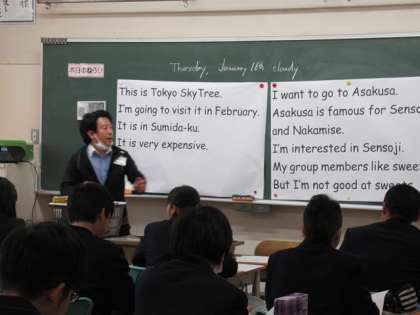 Thursday, January 16th cloudy
This is Tokyo SkyTree.
I'm going to visit it in February.
It is in Sumida-ku.
It is very expensive.
I want to go to Asakusa.
Asakusa is famous for Senso
and Nakamise.
I'm interested in Sensoji.
My group members like sweet
But I'm not good at sweets